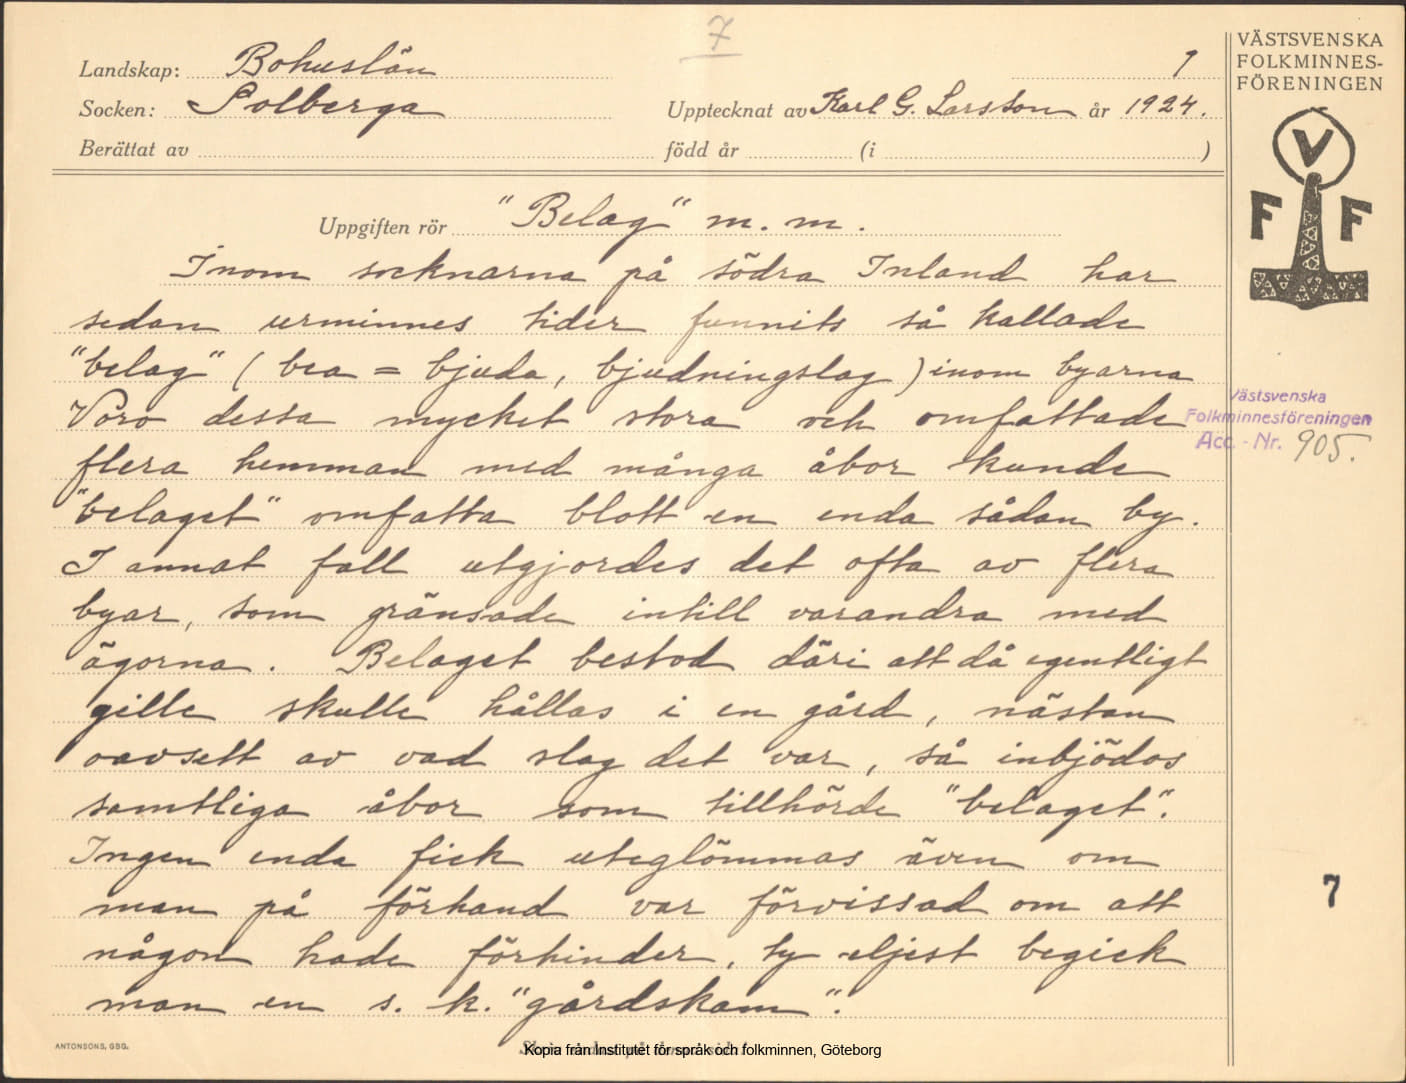 7
Landskap: Bohuslän 1
Socken: Solberga Upptecknat av Karl G. Larsson år 1924.
Berättat av född år (i )
VÄSTSVENSKA
FOLKMINNES-
FÖRENINGEN
V
F F
Uppgiften rör "Belag" m. m.
Inom socknarna på södra Inland har
sedan urminnes tider funnits så kallade
"belag" (bea = bjuda, bjudningslag) inom byarna
Voro dessa mycket stora och omfattade
flera hemman med många åbor kunde
"belaget" omfatta blott en enda sådan by.
I annat fall utgjordes det ofta av flera
byar, som gränsade intill varandra med
ägorna. Belaget bestod däri att då egentligt
gille skulle hållas i en gård, nästan
oavsett av vad slag det var, så inbjödos
samtliga åbor som tillhörde "belaget".
Ingen enda fick uteglömmas även om
man på förhand var förvissad om att
någon hade förhinder, ty eljest begick
man en s. k. "gårdskam".
Västsvenska
Folkminnesföreningen
Acc. - Nr. 905.
7
ANTONSONS, GBG.
Kopia från Institutet för språk och folkminnen, Göteborg